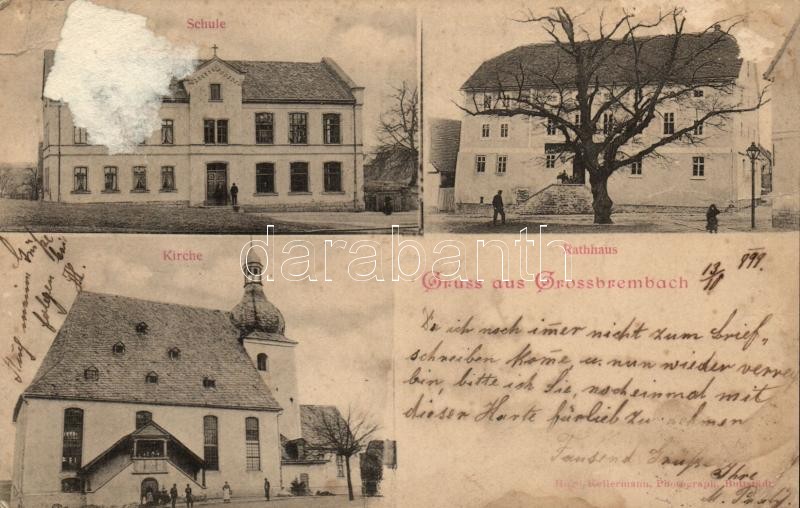 Schule
Rathhaus
Kirche
Gruss aus Grossbrembach
13/11 899.
Da ich noch im̄er nicht zum Brief=
schreiben kom̄e u. nun wieder verrei
bin, bitte ich Sie, nocheinmal mit
dieser Karte fürlieb zu nehmen
Tausend Grüße
Ihre
M.
folgen
darabanth.com
Kellermann, Photograph, Buttstädt.